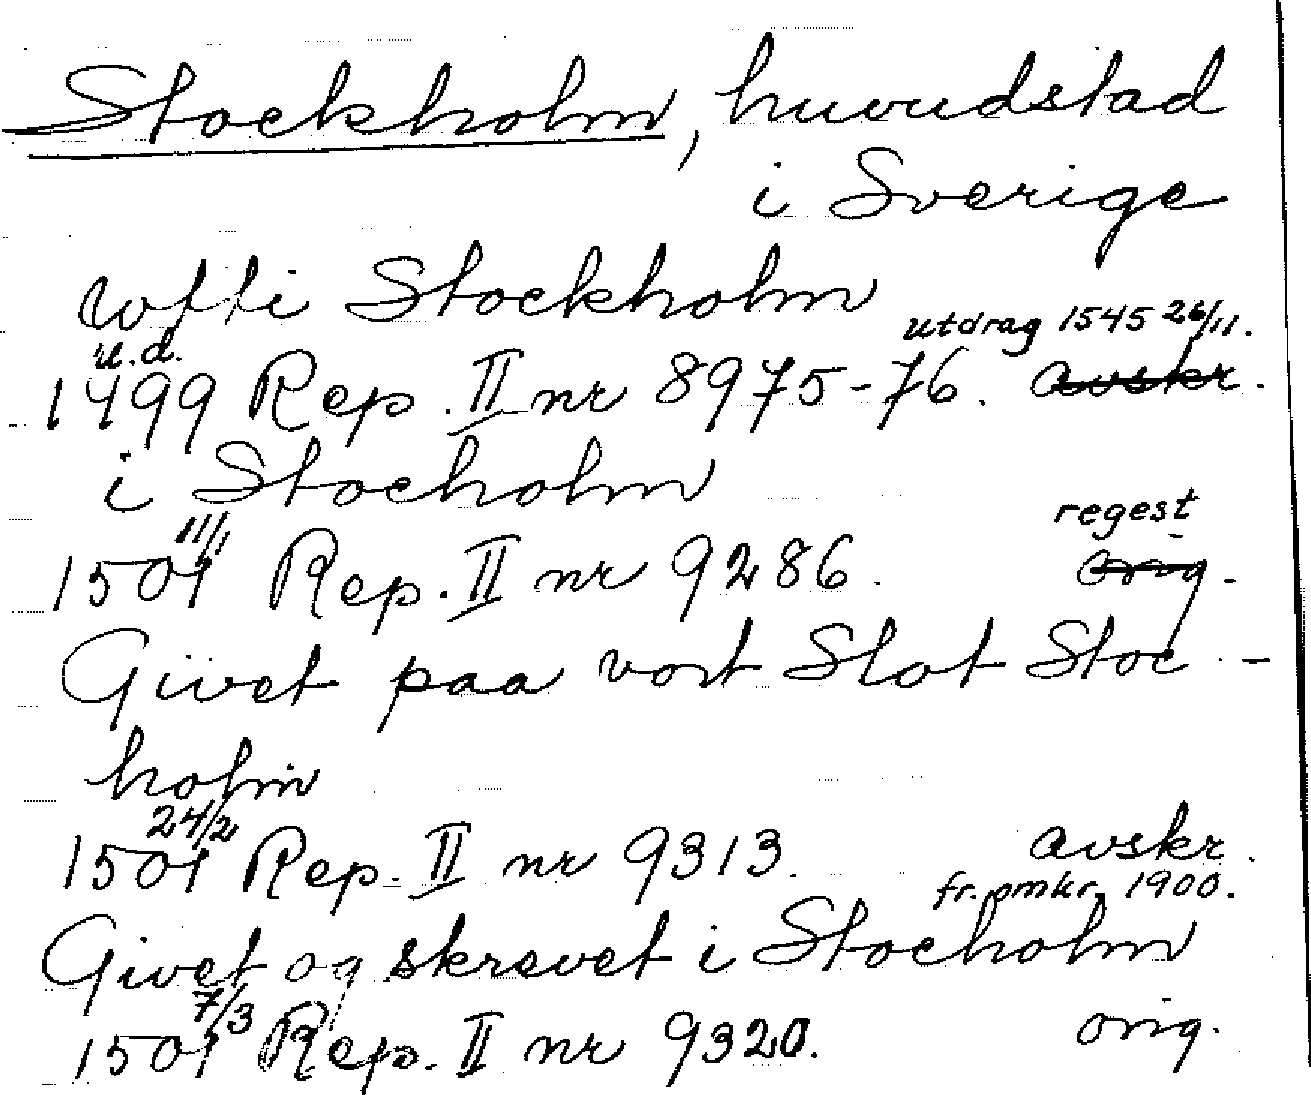 Stockholm, huvudstad
i Sverige
wtti Stockholm
utdrag 1545 26/11.
u.d.
1499 Rep. II nr 8975-76. avskr.
i Stocholm
11/1 regest
1501 Rep. II nr 9286. orig.
Givet paa vort Slot Stoc-
holm
24/2
1501 Rep. II nr 9313. avskr.
fr. omkr. 1900.
Givet og skrevet i Stocholm
7/3
1501 Rep. II nr 9320. orig.